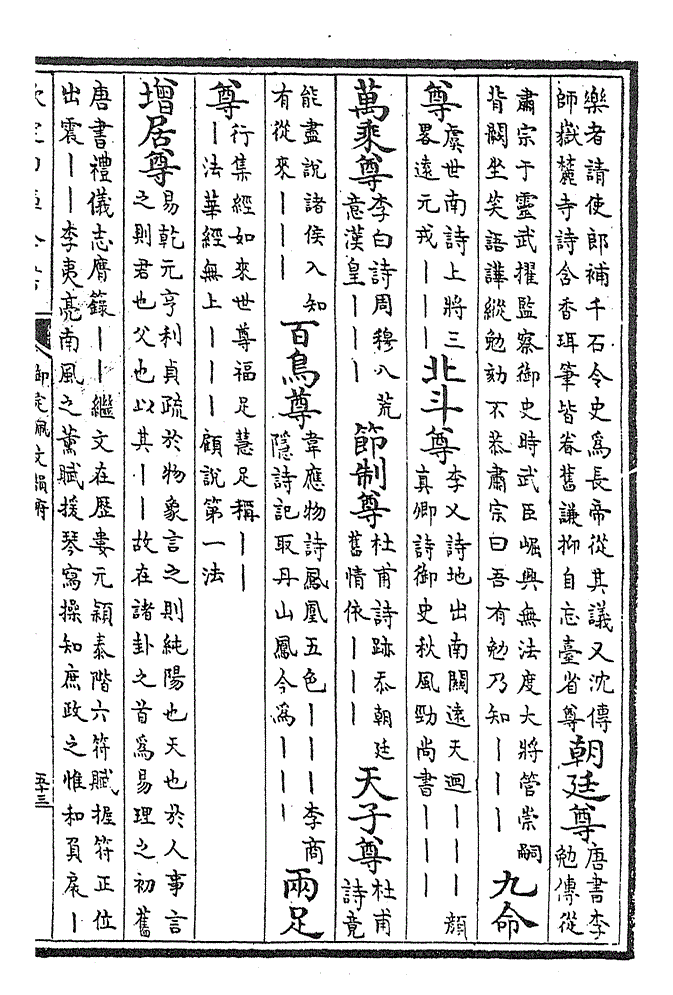 樂者請使郎補千石令史為長帝從其議又沈傳
師嶽麓寺詩含香珥筆皆眷舊謙抑自忘臺省尊
朝廷尊
唐書李
勉傳從
肅宗于靈武擢監察御史時武臣崛興無法度大將管崇嗣
背闕坐笑語譁縱勉劾不恭肅宗曰吾有勉乃知丨丨丨
九命
尊
虞世南詩上將三
畧遠元戎丨丨丨
北斗尊
李乂詩地出南闕遠天迴丨丨丨顏
真卿詩御史秋風勁尚書丨丨丨
萬乘尊
李白詩周穆八荒
意漢皇丨丨丨
節制尊
杜甫詩跡忝朝廷
舊情依丨丨丨
天子尊
杜甫
詩竟
能盡說諸侯入知
有從來丨丨丨
百鳥尊
韋應物詩鳳凰五色丨丨丨李商
隱詩記取丹山鳳今為丨丨丨
兩足
尊
行集經如來世尊福足慧足稱丨丨
丨法華經無上丨丨丨願說第一法
增居尊
易乾元亨利貞疏於物象言之則純陽也天也於人事言
之則君也父也以其丨丨故在諸卦之首為易理之初舊
唐書禮儀志膺籙丨丨繼文在歷婁元穎泰階六符賦握符正位
出震丨丨李夷亮南風之薰賦援琴寫操知庶政之惟和負扆丨
御定佩文韻府